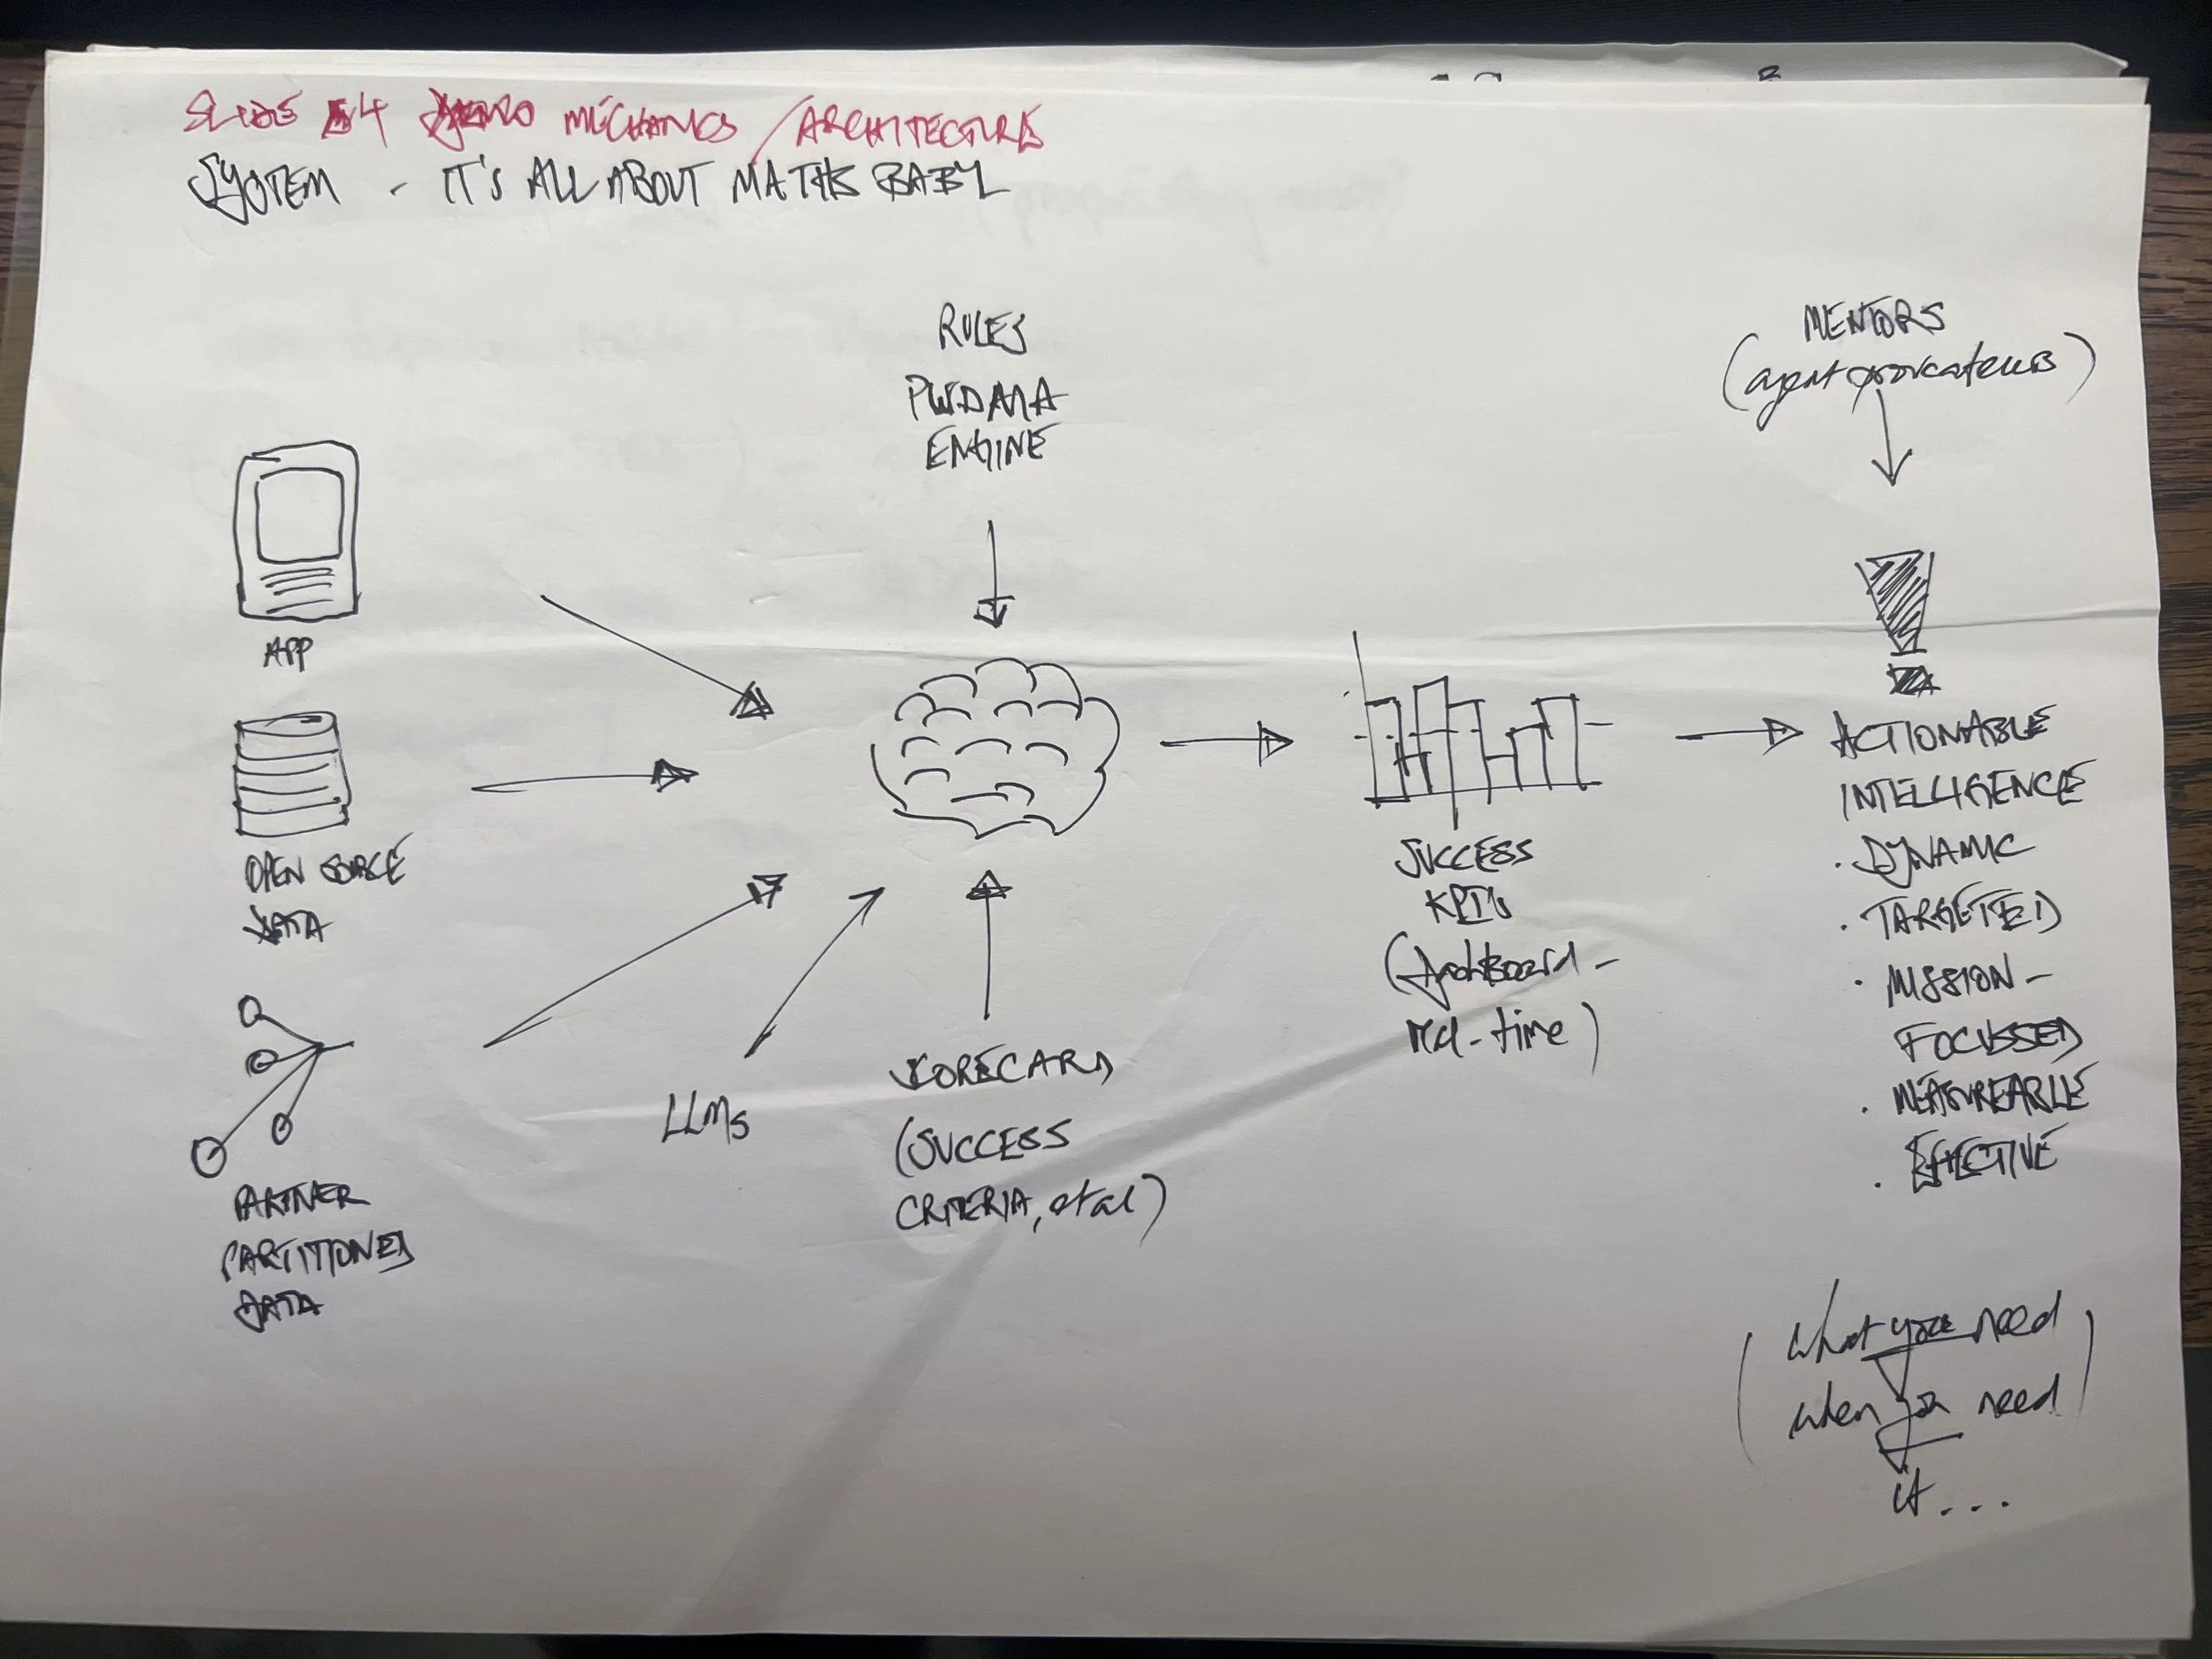 SLIDE 4 MECHANICS / ARCHITECTURE
SYSTEM - IT'S ALL ABOUT MATHS BABY
RULES
ENGINE
MENTORS
(agent provocateurs)
APP
OPEN SOURCE
DATA
PARTNER
PARTITIONED
DATA
LLMs
SCORECARD
(SUCCESS
CRITERIA, et al)
SUCCESS
KPI's
(dashboard -
real-time)
ACTIONABLE
INTELLIGENCE
· DYNAMIC
· TARGETED
· MISSION -
FOCUSSED
· MEASUREABLE
· EFFECTIVE
(what you need
when you need)
it...